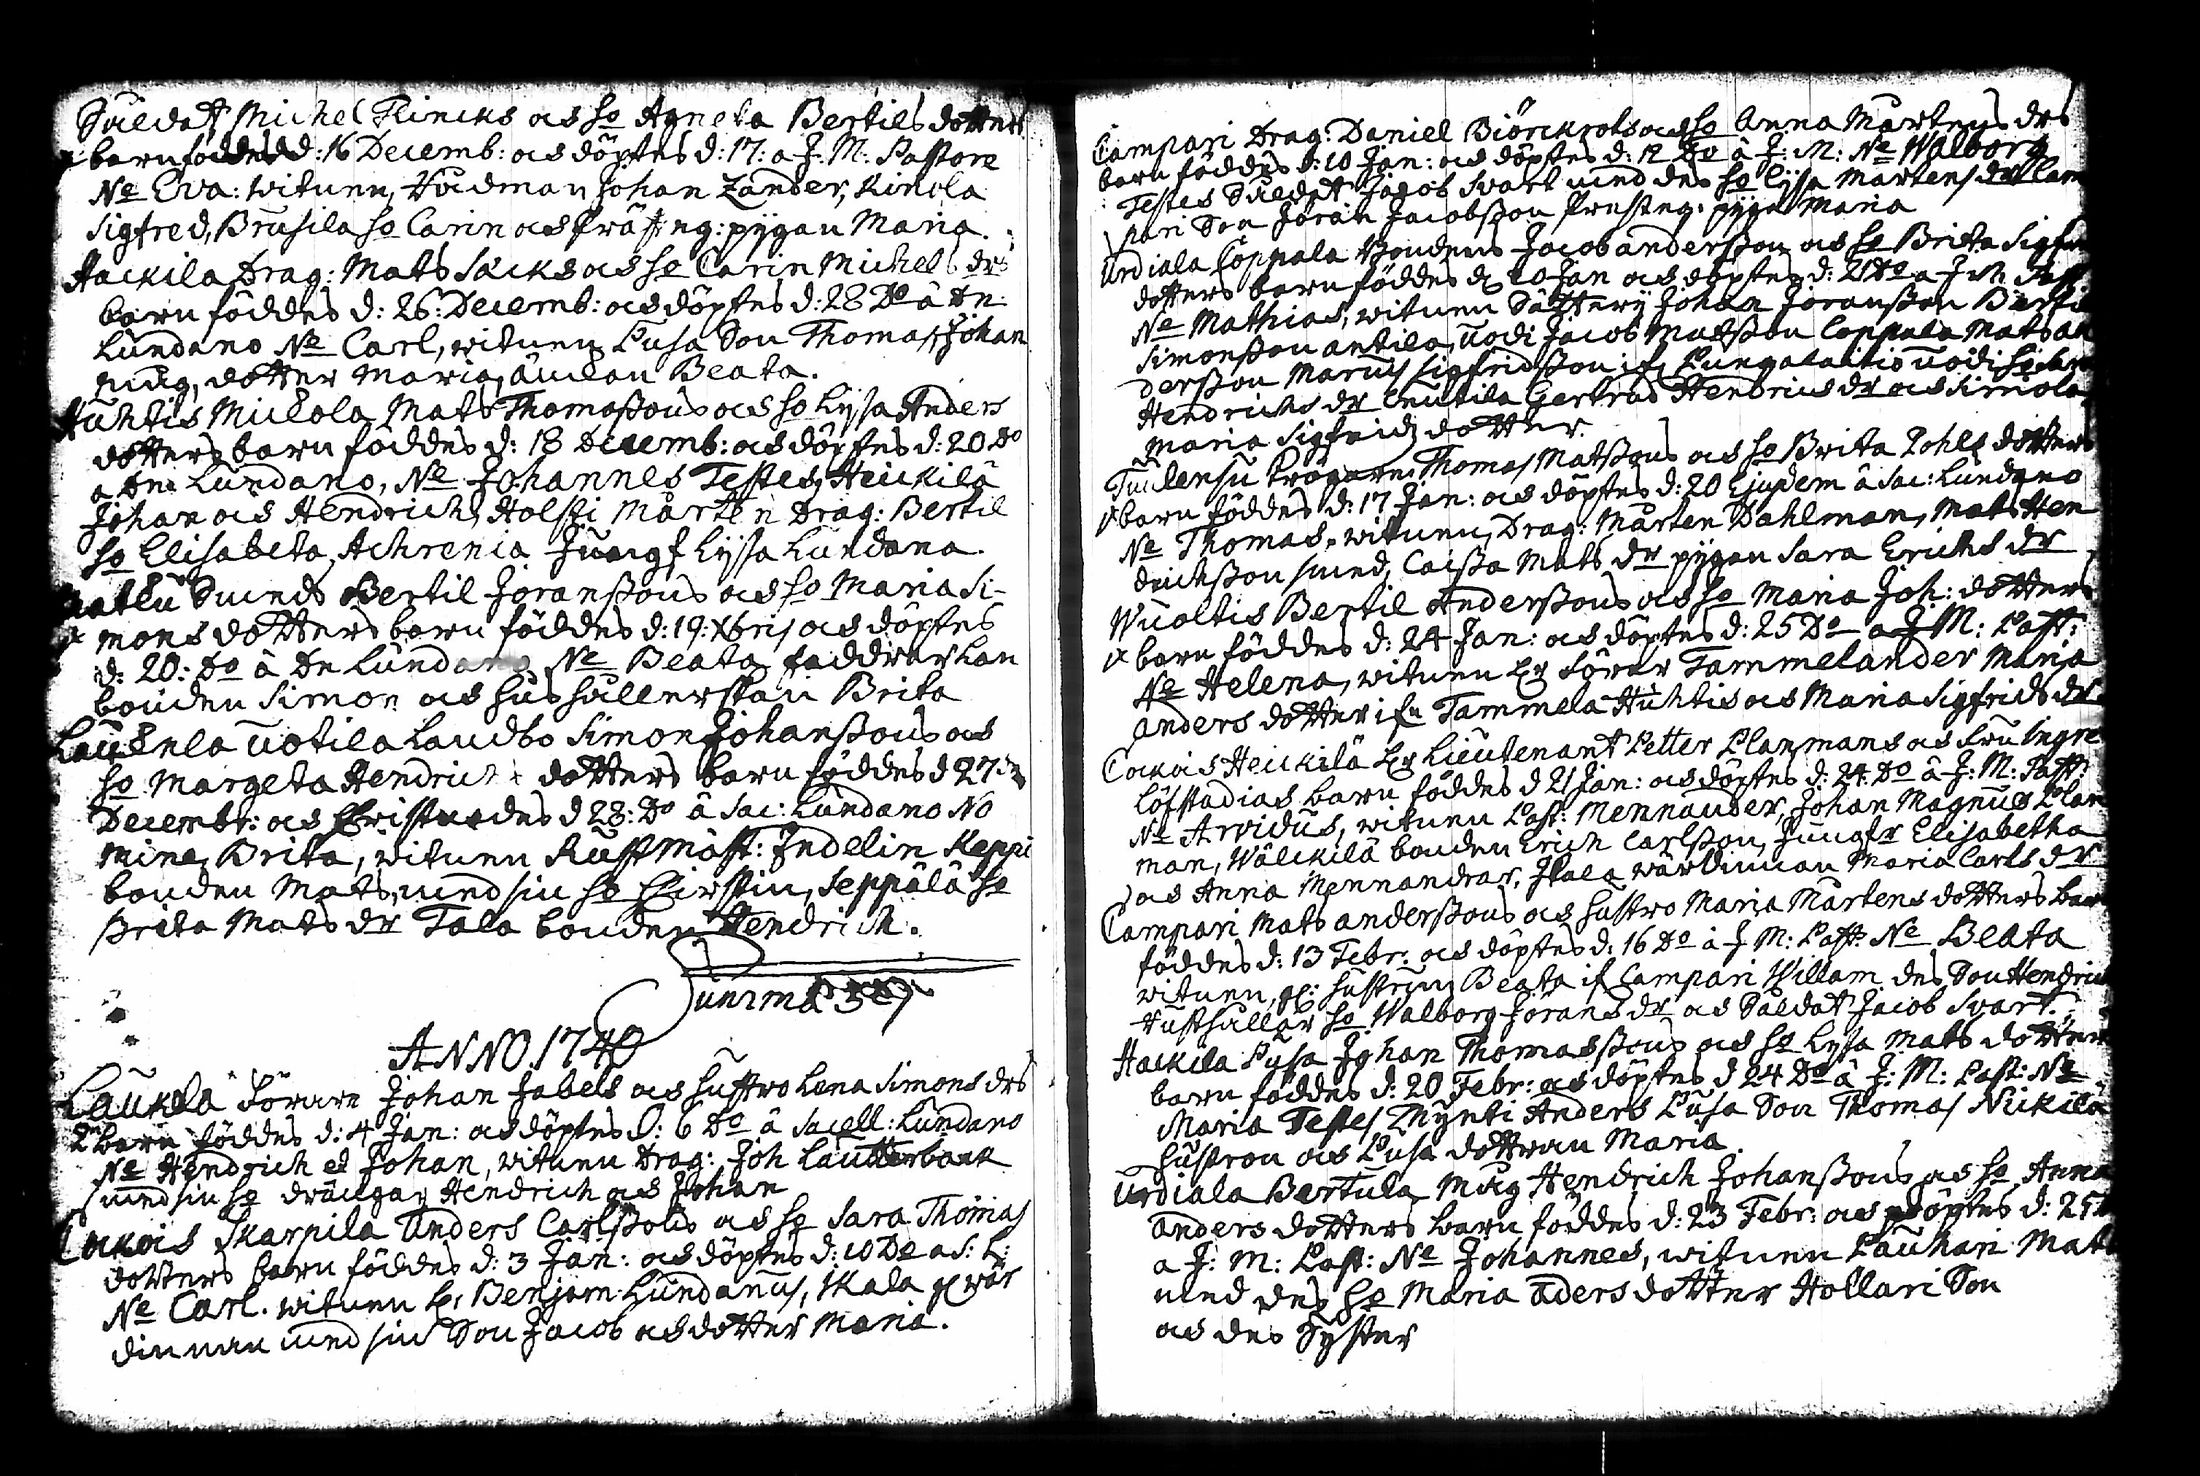 Såldat Michel Flincks och ho Agneta Bertils dotters
barn föddes d: 16 Decemb: och döptes d: 17: a J: M: Pastore
Ne Eva: witnen, Rådman Johan Zander, Kinola
Sigfred, Brusila ho Carin och Präste: pijgan Maria.
Hackila Drag: Mats Säcks och ho Carin Michels drs
barn föddes d: 26: Decemb: och döptes d: 28 Do â Dn:
Lundano Ne Carl, witnen Pusa Son Thomas, Johan
dotter Maria, änckan Beata.
Huhtis Mickola Mats Thomaßons och ho Lijsa Anders
dotters barn föddes d: 18 Decemb: och döptes d: 20 Do
a Dno Lundano, Ne Johannes Testes, Heickilä
Johan och Hendrich, Holsti Mårten Drag: Bertil
ho Elisabeta, Achrenia Jungf Lijsa Lundana.
Smeds Bertil Joranßons och ho Maria Si-
mons dotters barn föddes d: 19: Xbris och döptes
d: 20: Do â Dn Lundano Ne Beata faddrar
bonden Simon och hushållerskan Brita
Laukela Uotila Landbo Simon Johanßons och
ho Margeta Hendrichs dotters barn föddes d 27de
Decembr: och Christnades d 28: Do â Sac: Lundano No
mine, Brita, witnen Rustmäst: Indelin Keppi
bonden Mats, med sin ho Chirstin, Seppälä ho
Brita Mats dr Tala bonden Hendrich.
Summa 327
ANNO 1740
Laukela Förare Johan Fabels och hustro Lena Simons drs
2 barn föddes d: 4 Jan: och döptes d: 6 Do â Sacell: Lundano
Ne Hendrich et Johan, witnen Drag: Joh Lautterback
med sin ho drängar Hendrich och Johan
Cokois Skarpila Anders Carlßons och ho Sara Thomas
dotters barn föddes d: 3 Jan: och döptes d: 10 Do a S: L:
Ne Carl. witnen Hr Benjam: Lundanus, Skala gl wär
dinnan med sin Son Jacob och dotter Maria.
Campari Drag: Daniel Biörckrots och ho Anna Mårtens drs
barn föddes d: 10 Jan: och döptes d: 12 Do â J: M: Ne Walborg
Testes Såldat Jacob Svart med des ho Lijsa Mårtens dr Cam
pari Son Jöran Jacobßon Prusteg: pijga Maria
Urdiala Coppala Bondens Jacob anderßon och ho Brita Sigfre
dotters barn föddes d 20 Jan och döptes d: 21 Do a J: M. Past
Ne Mathias, witnen Sältterij Johan Joranßon Bertil
Simonßon antila, uodi Jacob Matßon Coppala Mats an
derßon Marcus Sigfridßon if Pungalaitio uodi
Hendrichs dr Eeutila Gertrud Hendrics dr och Simola
Maria Sigfridz dotter.
Tuulensu Krögaren Thomas Matßons och ho Brita Pohls dotters
barn föddes d: 17 Jan: och döptes d: 20 Ejusdem â Sac: Lundano
Ne Thomas, witnen, Drag: Mårten Dahlman, Mats Hen
drichßon smed, Caißa Mats dr pijgan Sara Erichs dr
Wualtis Bertil Anderßons och ho Maria Joh: dotters
barn föddes d: 24 Jan: och döptes d: 25 Do a J M: Past:
Ne Helena, witnen Hr Förar Tammelander Maria
Anders dotter ifrn Tammela Huhtis och Maria Sigfrids dr
Cokois Heickilä Hr Lieutenant Petter Planmans och Fru Ingre
Löfstadias barn föddes d 21 Jan: och döptes d: 24 Do â J: M: Past:
Ne Arvidus, witnen Past: Mennander, Johan Magnus Plan
man, Wälckilä bonden Erich Carlßon, Jungfr Elisabetha
och Anna Mennandrar, Skala wärdinnan Maria Carls dr
Campari Mats anderßons och hustro Maria Mårtens dotters bar
föddes d: 13 Febr: och döptes d: 16 Do â J M: Past: Ne Beata
witnen, gl: hustrun Beata if Campari Willam des Son Hendric
Hushållar ho Walborg Jörans dr och Såldat Jacob Svart.
Hackila Pusa Johan Thomasßons och ho Lijsa Mats dotters
barn föddes d: 20 Febr: och döptes d 24 Do â J: M: Past: Ne
Maria Testes Mynti Anders Pusa Son Thomas Nickilä
hustron och Pusa dottran Maria.
Urdiala Bertula Mag Hendrich Johanßons och ho Anna
Anders dotters barn föddes d: 23 Febr: och döptes d: 25
a J: M: Past: Ne Johannes, witnen Pauhari Mats
med des ho Maria Aders dotter Hollari Son
och des Syster